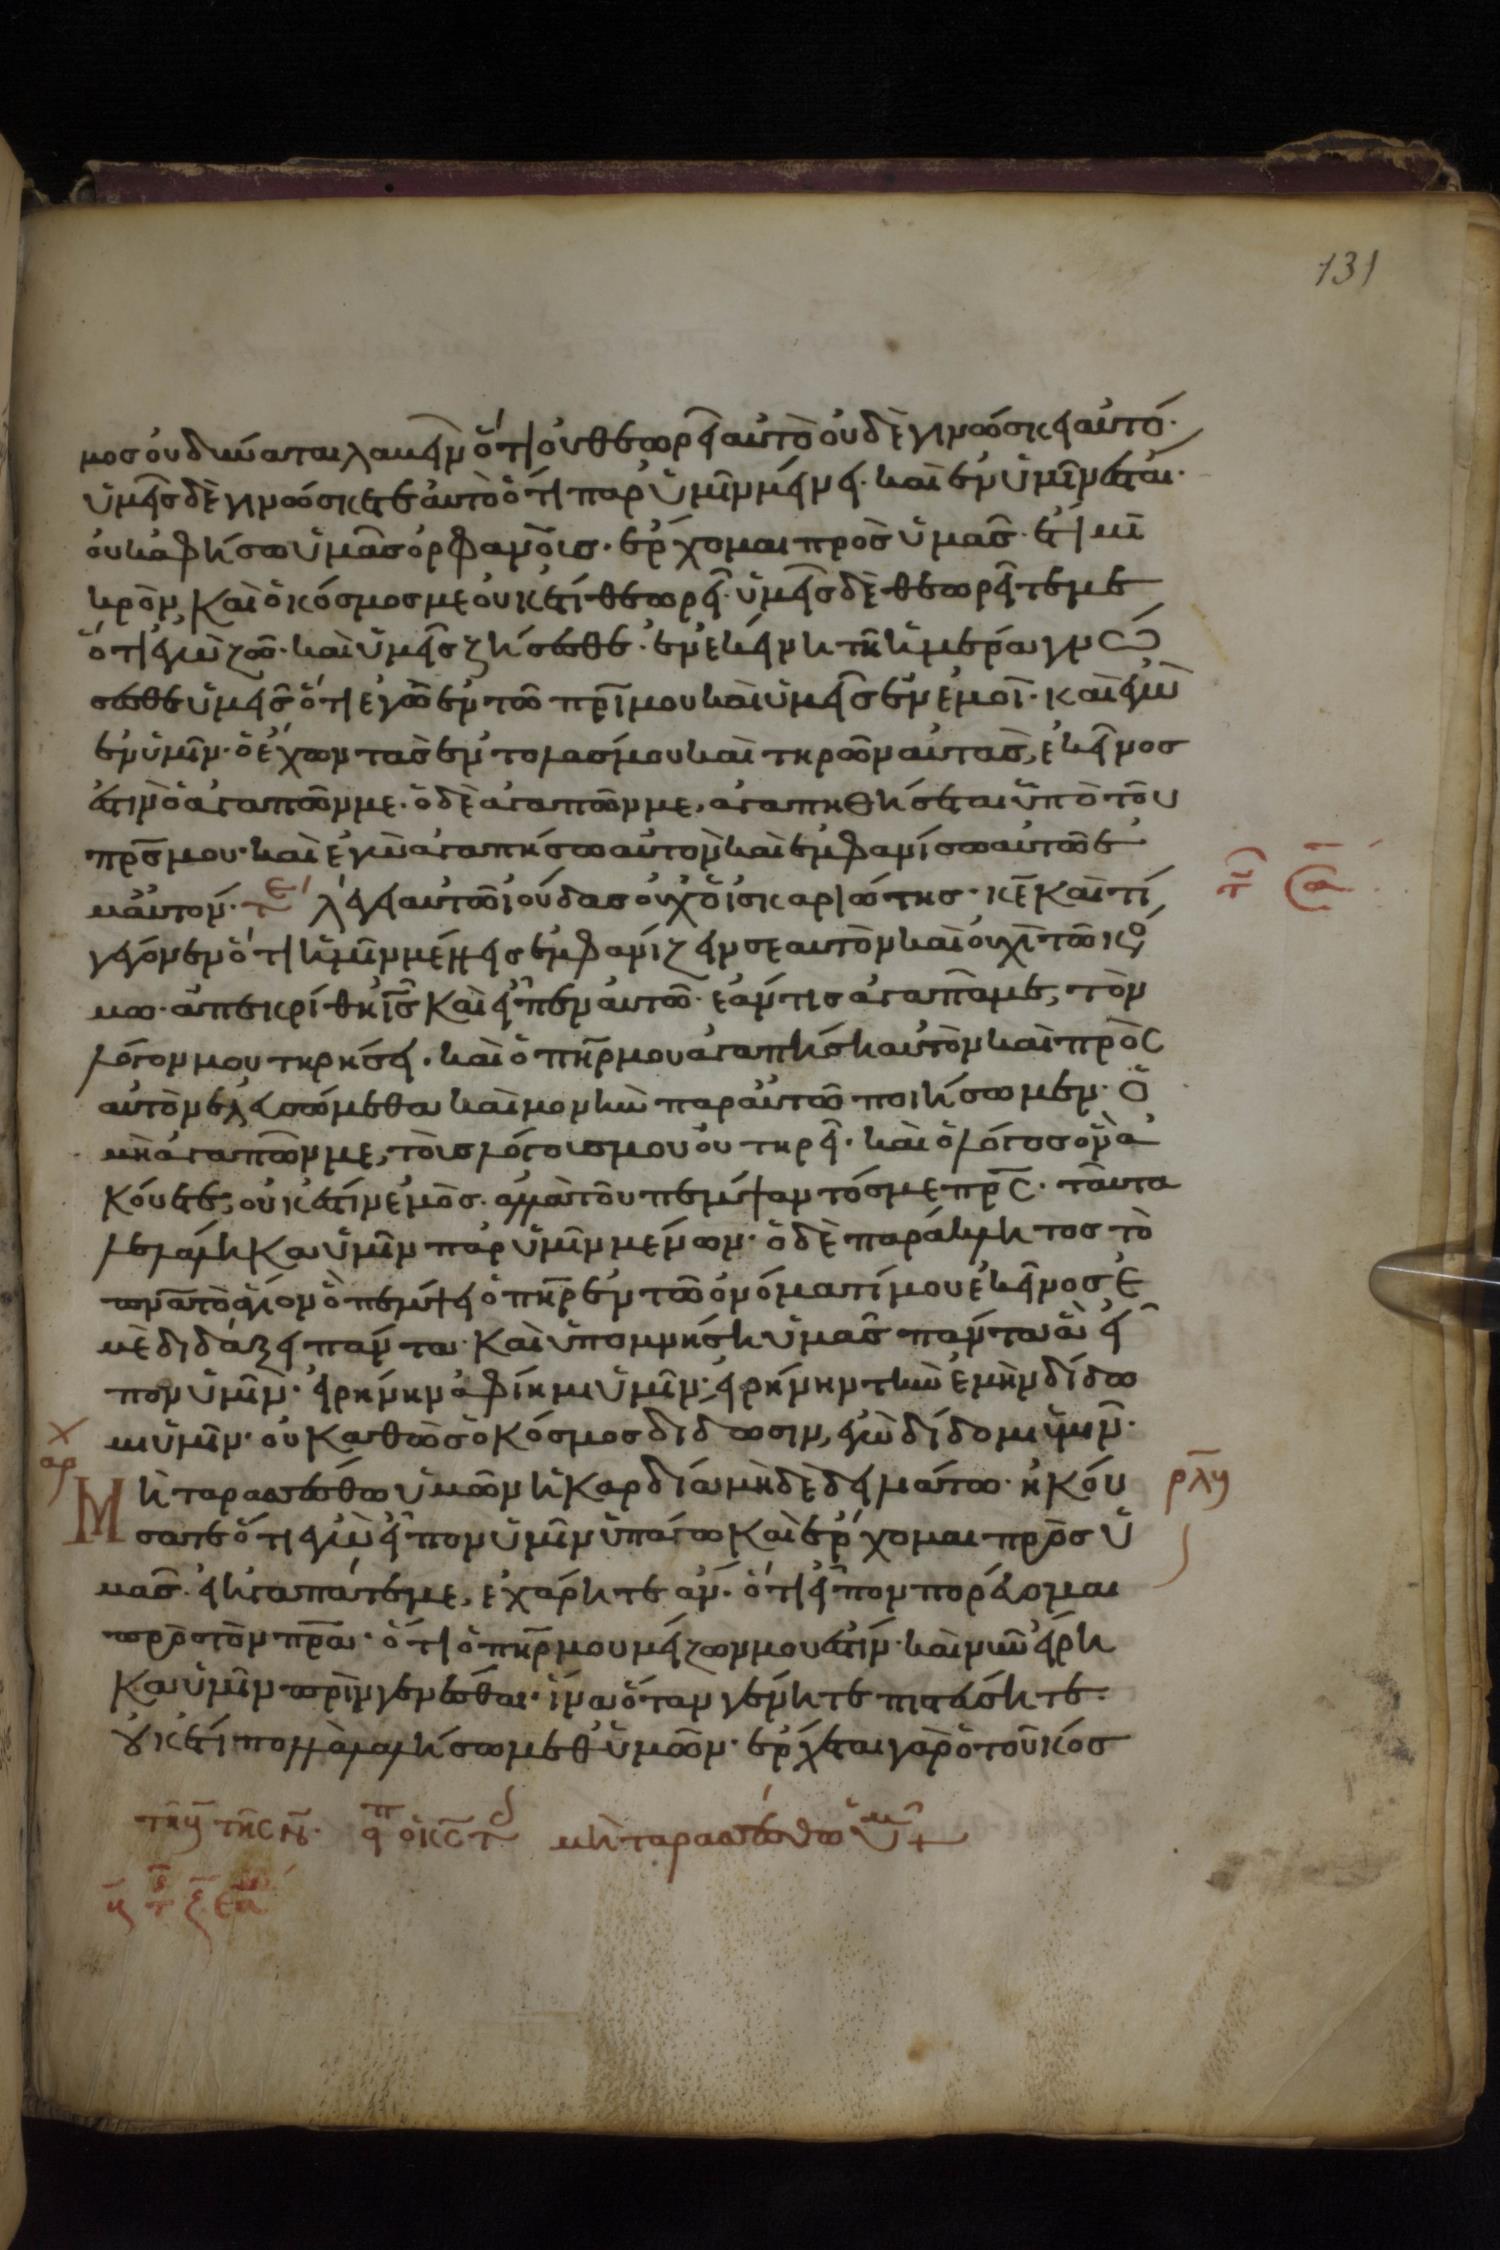 131
μοσ οὐ δύναται λαβεῖν ὅτι οὐ θεωρεῖ αὐτὸ οὐδὲ γινώσκει αὐτό·
ὑμεῖσ δὲ γινώσκετε αὐτὸ ὅτι παρ ὑμῖν μένει· καὶ ἐν ὑμῖν ἔσται·
οὐκ ἀφήσω ὑμᾶσ ὀρφανούσ· ἔρχομαι πρὸσ ὑμᾶσ· ἔτι μι
κρὸν καὶ ὁ κόσμοσ με οὐκέτι θεωρεῖ· ὑμεῖσ δὲ θεωρεῖτε με
ὅτι ἐγὼ ζῶ· καὶ ὑμεῖσ ζήσεσθε· ἐν ἐκείνη τῆ ἡμέρα γνώ
σεσθε ὑμεῖσ ὅτι ἐγὼ ἐν τῶ πρι μου καὶ ὑμεῖσ ἐν ἐμοί· καὶ ἐγὼ
ἐν ὑμῖν· ὁ ἔχων τὰσ ἐντολάσ μου καὶ τηρῶν αὐτὰσ, ἐκεῖνοσ
ἐστιν ὁ ἀγαπῶν με· ὁ δὲ ἀγαπῶν με, ἀγαπηθήσεται ὑπὸ τοῦ
πρσ μου· καὶ ἐγὼ ἀγαπήσω αὐτὸν καὶ ἐμφανίσω αὐτῶ ἐ
μαυτόν· λέγει αὐτῶ ἰούδασ οὐχ ὁ ἰσκαριώτησ· κε καὶ τί
γέγονεν ὅτι ἡμῖν μέλλεισ ἐμφανίζειν σεαυτὸν καὶ οὐχὶ τῶ κόσ
μω· ἀπεκρίθη ισ καὶ εἶπεν αὐτῶ· ἐάν τισ ἀγαπᾶ με, τὸν
λόγον μου τηρήσει· καὶ ὁ πηρ μου ἀγαπήση αὐτὸν καὶ πρὸσ
αὐτὸν ἐλευσόμεθα καὶ μονὴν παρ αὐτῶ ποιήσωμεν· ὁ
μὴ ἀγαπῶν με, τοὺσ λόγουσ μου οὐ τηρεῖ· καὶ ὁ λόγοσ ὃν ἀ
κούετε, οὐκ ἔστιν ἐμὸσ· ἀλλὰ τοῦ πέμψαντόσ με πρσ· ταῦτα
λελάληκα ὑμῖν παρ ὑμῖν μένων· ὁ δὲ παράκλητοσ τὸ
πνα τὸ ἅγιον ὃ πέμψει ὁ πηρ ἐν τῶ ὀνόματί μου ἐκεῖνοσ ὑ
μᾶσ διδάξει πάντα· καὶ ὑπομνήση ὑμᾶσ πάντα ἃ εἶ
πον ὑμῖν· εἰρήνην ἀφίημι ὑμῖν· εἰρήνην τὴν ἐμὴν δίδω
μι ὑμῖν· οὐ καθὼσ ὁ κόσμοσ δίδωσιν, ἐγὼ δίδομι ὑμῖν·
Μὴ ταρασσέσθω ὑμῶν ἡ καρδία μηδὲ δειλιάτω· ἠκού
ρλγ
σατε ὅτι ἐγὼ εἶπον ὑμῖν ὑπάγω καὶ ἔρχομαι πρὸσ ὑ
μᾶσ· εἰ ἠγαπάτε με, ἐχάρητε ἂν· ὅτι εἶπον πορεύομαι
πρὸσ τὸν πρα· ὅτι ὁ πηρ μου μείζων μου ἐστίν· καὶ νῦν εἴρη
κα ὑμῖν πρὶν γενέσθαι· ἵνα ὅταν γένητε πιστεύσητε·
οὐκέτι πολλὰ λαλήσω μεθ ὑμῶν· ἔρχεται γὰρ ὁ τοῦ κόσ
μὴ ταρασσέσθω ὑμῶν